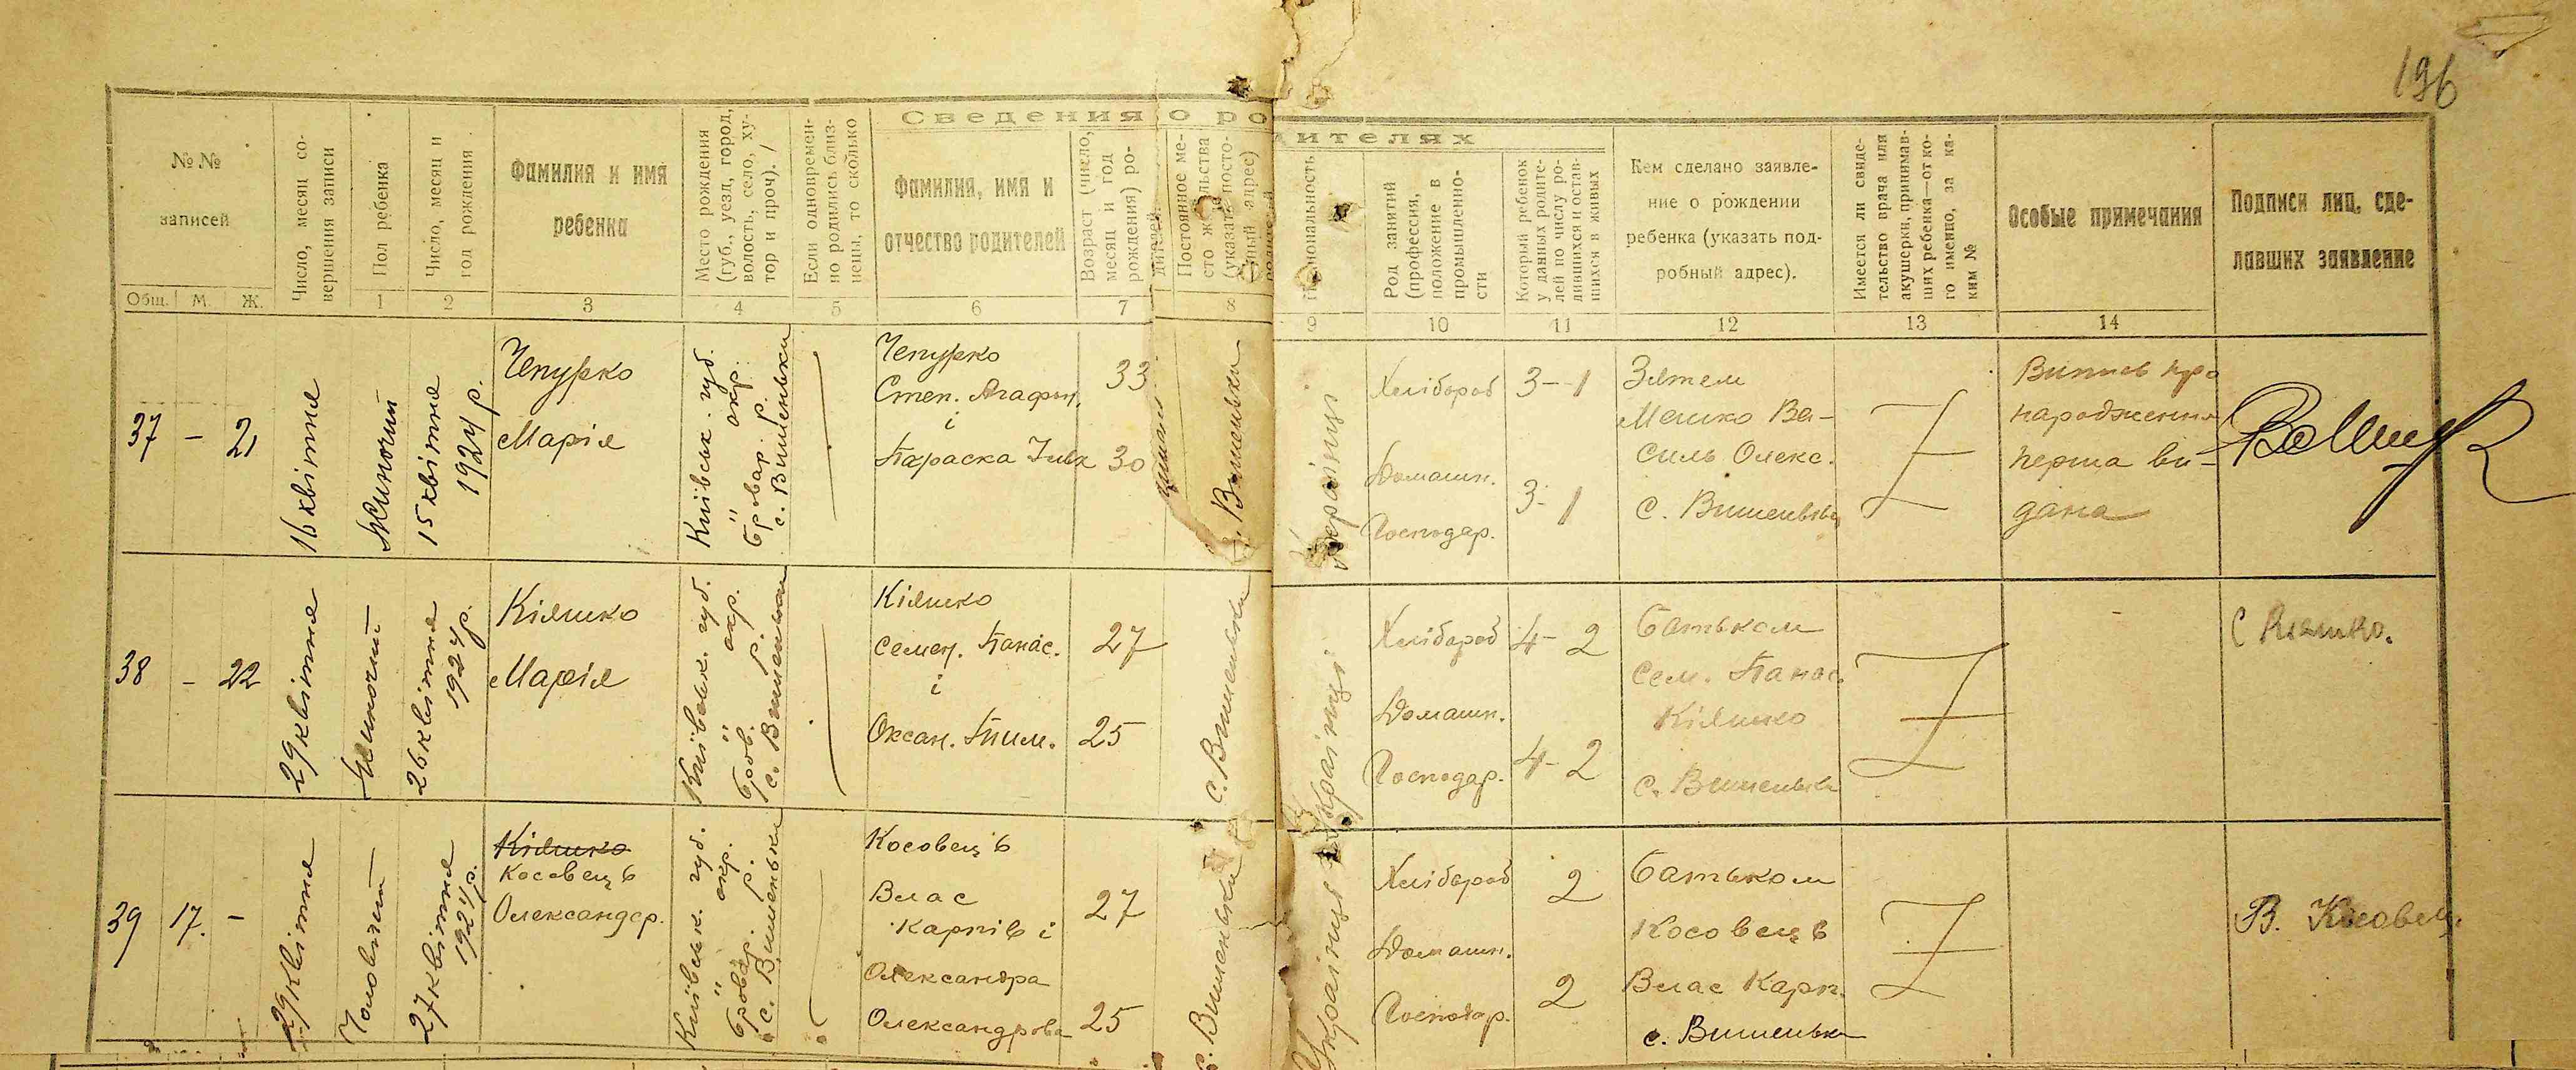 196
Сведения о родителях
№ №
записей
Общ. М. Ж.
Число, месяц со-
вершения записи
Пол ребенка
1
Число, месяц и
год рождения
2
Фамилия и имя
ребенка
3
Место рождения
(губ., уезд, город,
волость, село, ху-
тор и проч).
4
Если одновремен-
но родились близ-
нецы, то сколько
5
Фамилия, имя и
отчество родителей
6
Возраст (число,
месяц и год
рождения) ро-
дителей
7
Постоянное ме-
сто жительства
(указать посто-
янный адрес)
8
Национальность
9
Род занятий
(профессия,
положение в
промышленно-
сти
10
Который ребенок
у данных родите-
лей по числу ро-
дившихся и остав-
шихся в живых
11
Кем сделано заявле-
ние о рождении
ребенка (указать под-
робный адрес).
12
Имеется ли свиде-
тельство врача или
акушерки, принимав-
ших ребенка—от ко-
го именно, за ка-
ким №
13
Особые примечания
14
Подписи лиц, сде-
лавших заявление
37 - 21
16 квітня
Жиночий
15 квітня
1924 р.
Чепурко
Марія
Київськ. губ.
" окр.
Бровар. р.
с. Вишеньки
Чепурко
Степ. Агафон.
і
Параска
33
30
с. Вишеньки
Українці
Хлібороб
Домашн.
Господар.
3-1
3-1
Зятем
Мешко Ва-
силь Олекс.
с. Вишеньки
Випись про
народження
перша ви-
дана
38 - 22
29 квітня
Жиночий
26 квітня
1924 р.
Кіяшко
Марія
Київськ. губ.
" окр.
Бров. р.
с. Вишеньки
Кіяшко
Семен. Панас.
і
Оксан. Тим.
27
25
с. Вишеньки
Українці
Хлібороб
Домашн.
Господар.
4-2
4-2
Батьком
Сем. Панас.
Кіяшко
с. Вишеньки
С Кіяшко.
39 17. -
29 квітня
Чоловічий
27 квітня
1924 р.
Кіяшко
Косовець
Олександр.
Київськ. губ.
" окр.
Бровар. р.
с. Вишеньки
Косовець
Влас
Карпів і
Олександра
Олександрова
27
25
с. Вишеньки
Українці
Хлібороб
Домашн.
Господар.
2
2
Батьком
Косовець
Влас Карп.
с. Вишеньки
В. Косовец.